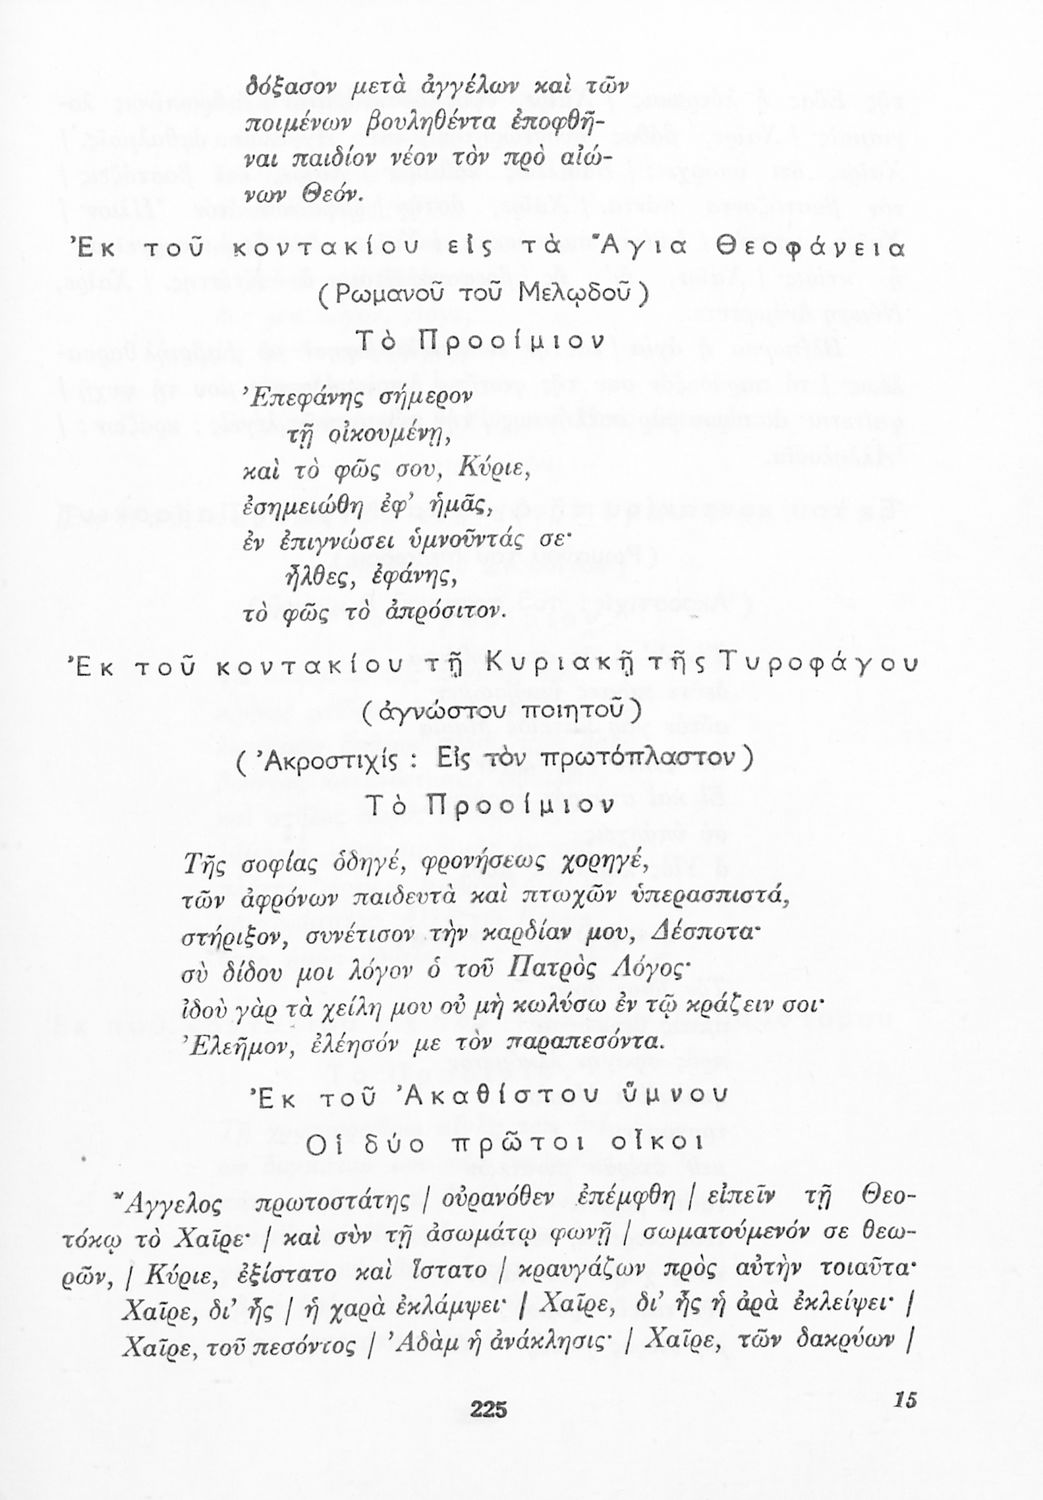 δόξασον μετὰ ἀγγέλων καὶ τῶν
ποιμένων βουληθέντα ἐποφθῆ-
ναι παιδίον νέον τὸν πρὸ αἰώ-
νων Θεόν.
Ἐκ τοῦ κοντακίου εἰς τὰ Ἅγια Θεοφάνεια
(Ρωμανοῦ τοῦ Μελῳδοῦ)
Τὸ Προοίμιον
Ἐπεφάνης σήμερον
τῇ οἰκουμένῃ,
καὶ τὸ φῶς σου, Κύριε,
ἐσημειώθη ἐφ' ἡμᾶς,
ἐν ἐπιγνώσει ὑμνοῦντάς σε·
ἦλθες, ἐφάνης,
τὸ φῶς τὸ ἀπρόσιτον.
Ἐκ τοῦ κοντακίου τῇ Κυριακῇ τῆς Τυροφάγου
(ἀγνώστου ποιητοῦ)
(Ἀκροστιχίς : Εἰς τὸν πρωτόπλαστον)
Τὸ Προοίμιον
Τῆς σοφίας ὁδηγέ, φρονήσεως χορηγέ,
τῶν ἀφρόνων παιδευτὰ καὶ πτωχῶν ὑπερασπιστά,
στήριξον, συνέτισον τὴν καρδίαν μου, Δέσποτα·
σὺ δίδου μοι λόγον ὁ τοῦ Πατρὸς Λόγος·
ἰδοὺ γὰρ τὰ χείλη μου οὐ μὴ κωλύσω ἐν τῷ κράζειν σοι·
Ἐλεῆμον, ἐλέησόν με τὸν παραπεσόντα.
Ἐκ τοῦ Ἀκαθίστου ὕμνου
Οἱ δύο πρῶτοι οἶκοι
Ἄγγελος πρωτοστάτης / οὐρανόθεν ἐπέμφθη / εἰπεῖν τῇ Θεο-
τόκῳ τὸ Χαῖρε· / καὶ σὺν τῇ ἀσωμάτῳ φωνῇ / σωματούμενόν σε θεω-
ρῶν, / Κύριε, ἐξίστατο καὶ ἵστατο / κραυγάζων πρὸς αὐτὴν τοιαῦτα·
Χαῖρε, δι' ἧς / ἡ χαρὰ ἐκλάμψει· / Χαῖρε, δι' ἧς ἡ ἀρὰ ἐκλείψει· /
Χαῖρε, τοῦ πεσόντος / Ἀδὰμ ἡ ἀνάκλησις· / Χαῖρε, τῶν δακρύων /
225
15